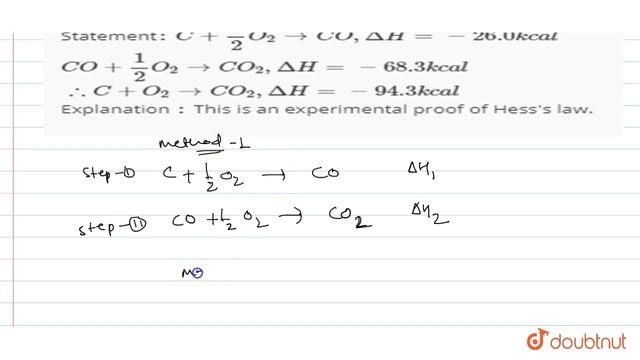 Statement : C + 1/2 O₂ → CO, ΔH = − 26.0kcal
CO + 1/2 O₂ → CO₂, ΔH = − 68.3kcal
∴ C + O₂ → CO₂, ΔH = − 94.3kcal
Explanation : This is an experimental proof of Hess's law.
method - I
Step-(I) C + 1/2 O₂ → CO ΔH₁
Step-(II) CO + 1/2 O₂ → CO₂ ΔH₂
doubtnut